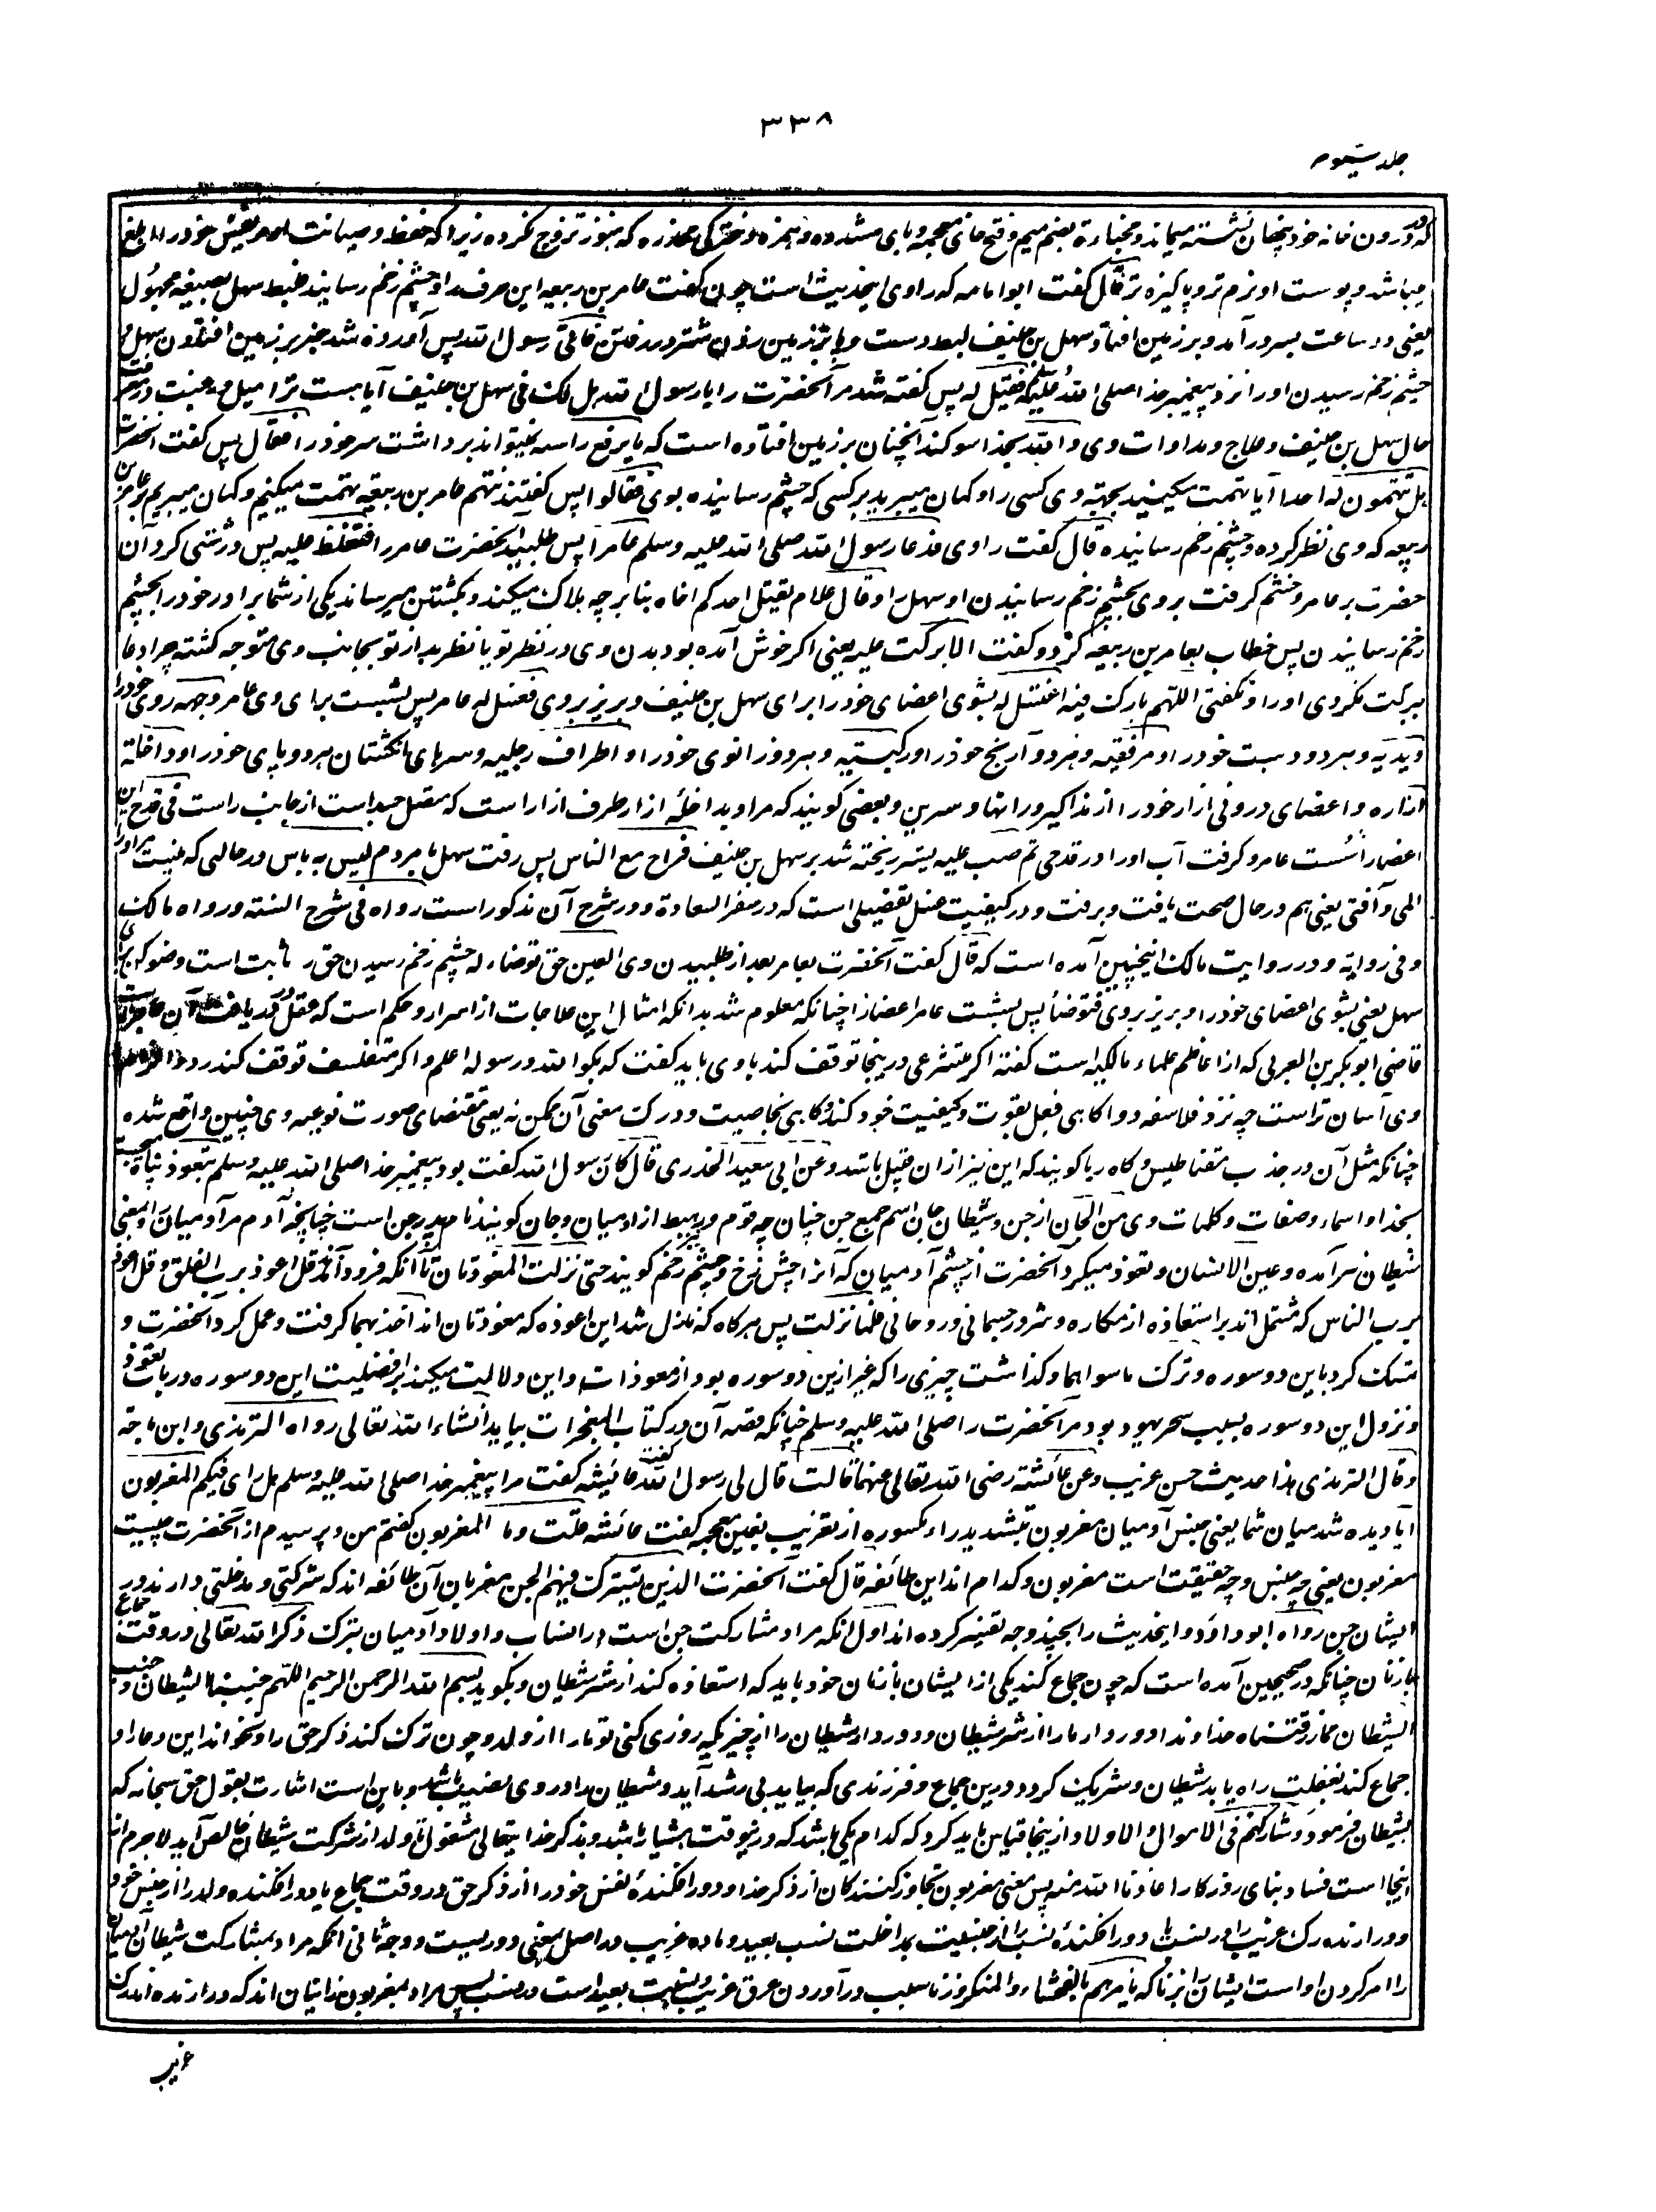 ٣٣٨
جلد سیوم
که در درون خانه خود پنهان نشسته میماند و مخباءة بضم میم و فتح خای معجمه و بای مشدده و همزه دخترکی مخدره که هنوز تزوج نکرده زیرا که حفظ و صیانت خود را ابلغ
میباشد و پوست او نرم تر و پاکیزه تر قال گفت ابو امامه که راوی اینحدیث است چون گفت عامر بن ربیعه این حرف را و چشم زخم رسانید فلبط سهل بصیغه مجهول
یعنی در ساعت بسر در آمد و بر زمین افتاد سهل بن حنیف لبط دست و پا بر زمین زدن شتر در رفتن فاتی رسول الله پس آورده شد خبر بر زمین افتادن سهل و
چشم زخم رسیدن او را نزد پیغمبر خدا صلی الله علیه وسلم فقیل له پس گفته شد مر آنحضرت را یا رسول الله هل لک فی سهل بن حنیف آیا هست ترا میل و رغبت در
حال سهل بن حنیف و علاج و مداوات وی و الله بخدا سوگند آنچنان بر زمین افتاده است که ما یرفع راسه نمیتواند برداشت سر خود را فقال پس گفت آنحضرت
هل تتهمون له احدا آیا تهمت میکنید بجهته وی کسی را و گمان میبرید بر کسی که چشم رسانیده بوی فقالوا پس گفتند نتهم عامر بن ربیعه تهمت میکنیم و گمان میبریم بر عامر بن
ربیعه که وی نظر کرده و چشم زخم رسانیده قال گفت راوی فدعا رسول الله صلی الله علیه وسلم عامرا پس طلبید آنحضرت عامر را فتغلظ علیه پس درشتی کرد آن
حضرت بر عامر و خشم گرفت بر وی بچشم زخم رسانیدن او سهل را و قال علام یقتل احدکم اخاه بنا بر چه هلاک میکند و بکشتن میرساند یکی از شما برادر خود را بچشم
زخم رسانیدن پس خطاب بعامر بن ربیعه کرد و گفت الا برکت علیه یعنی اگر خوش آمده بود بدن وی در نظر تو یا نظر بد از تو بجانب وی متوجه گشته چرا دعا
ببرکت نکردی او را و نگفتی اللهم بارک فیه اغتسل له بشوی اعضای خود را برای سهل بن حنیف و بریز بر وی فغسل له عامر پس بشست برای وی عامر وجهه روی خود را
و یدیه و هر دو دست خود را و مرفقیه و هر دو آرنج خود را و رکبتیه و هر دو زانوی خود را و اطراف رجلیه و سرهای انگشتان هر دو پای خود را و داخلة
ازاره و اعضای درونی ازار خود را از مذاکیر و رانها و سرین و بعضی گویند که مراد بداخله ازار طرف ازار است که متصل جسد است از جانب راست فی قدح این
اعضا را شست عامر و گرفت آب او را در قدحی ثم صب علیه پستر ریخته شد بر سهل بن حنیف فراح مع الناس پس رفت سهل با مردم لیس به باس در حالی که نیست مر او را
المی و آفتی یعنی هم در حال صحت یافت و برفت و در کیفیت غسل تفصیلی است که در سفر السعادة و در شرح آن مذکور است رواه فی شرح السنة و رواه مالک
و فی روایة و در روایت مالک اینچنین آمده است که قال گفت آنحضرت بعامر بعد از طلبیدن وی العین حق توضاء له چشم زخم رسیدن حق و ثابت است وضو کن برای
سهل یعنی بشوی اعضای خود را و بریز بر وی فتوضأ پس بشست عامر اعضا را چنانکه معلوم شد بدانکه امثال این علاجات از اسرار و حکم است که عقل در دریافت آن عاجز است
قاضی ابوبکر بن العربی که از اعاظم علماء مالکیه است گفته اگر متشرعی درینجا توقف کند با وی باید گفت که بگو الله و رسوله اعلم و اگر متفلسف توقف کند رد
وی آسان تر است چه نزد فلاسفه دوا گاهی فعل بقوت و کیفیت خود کند و گاهی بخاصیت و درک معنی آن ممکن نه یعنی مقتضای صورت نوعیه وی چنین واقع شده
چنانکه مثل آن در جذب مقناطیس و کاه ربا گویند که این نیز از ان قبیل باشد وعن ابی سعید الخدری قال کان رسول الله گفت بود پیغمبر خدا صلی الله علیه وسلم یتعوذ پناه میجست
بخدا و اسماء و صفات و کلمات وی من الجان از جن و شیطان جان اسم جمع جن چنان چه قوم و رهط از ادمیان و جان گویند نام پدر جن است چنانچه آدم مر آدمیان و المعنی
شیطان سر آمده و عین الانسان و تعوذ میکرد آنحضرت از چشم آدمیان که آنرا چشم زخم گویند حتی نزلت المعوذتان تا آنکه فرود آمد قل اعوذ برب الفلق و قل اعوذ
برب الناس که مشتمل اند بر استعاذه از مکاره و شرور جسمانی و روحانی فلما نزلت پس هرگاه که نازل شد این اعوذه که معوذتان اند اخذ بهما گرفت و عمل کرد آنحضرت و
تمسک کرد باین دو سوره و ترک ما سواهما و گذاشت چیزی را که غیر ازین دو سوره بود از معوذات و این دلالت میکند بر افضلیت این دو سوره در باب تعوذ
و نزول این دو سوره بسبب سحر یهود بود مر آنحضرت را صلی الله علیه وسلم چنانکه قصه آن در کتاب المعجزات بیاید انشاء الله تعالی رواه الترمذی و ابن ماجة
و قال الترمذی هذا حدیث حسن غریب وعن عائشة رضی الله تعالی عنها قالت قال لی رسول الله گفت عائشه گفت مرا پیغمبر خدا صلی الله علیه وسلم هل رای فیکم المغربون
آیا دیده شد میان شما یعنی جنس آدمیان مغربون بتشدید راء مکسوره از تغریب بغین معجمه گفت عائشه قلت وما المغربون گفتم من و پرسیدم از آنحضرت چیست
مغربون یعنی چه جنس و چه حقیقت است مغربون و کدام اند این طائفه قال گفت آنحضرت الذین یشترک فیهم الجن مغربان آن طائفه اند که شرکتی و مدخلتی دارند در
ایشان جن رواه ابو داود و اینحدیث را بچند وجه تفسیر کرده اند اول آنکه مراد مشارکت جن است در انساب و اولاد آدمیان بترک ذکر الله تعالی در وقت جماع
بازنان چنانکه در صحیحین آمده است که چون جماع کند یکی از ایشان با زنان خود باید که استعاذه کند از شر شیطان و بگوید بسم الله الرحمن الرحیم اللهم جنبنا الشیطان و جنب
الشیطان مما رزقتنا خداوندا دور دار ما را از شر شیطان و دور دار شیطان را از چیزیکه روزی کنی تو ما را از ولد و چون ترک کند ذکر حق را و نخواند این دعا را و
جماع کند بغفلت راه یابد شیطان و شریک گردد درین جماع و فرزندی که بیاید بی رشد آید و شیطان را در وی نصیب باشد و باین است اشارت بقول حق سبحانه که
بشیطان فرمود و شارکهم فی الاموال و الاولاد از اینجا قیاس باید کرد که کدام یکی باشد که درینوقت هشیار باشد و بذکر خدایتعالی مشغول تا ولد از شرکت شیطان خالص آید لاجرم از
اینجا است فساد بنای روزگار اعاذنا الله منه پس معنی مغربون تجاوز کنندگان از ذکر خدا و دور افکندهٔ نفس خود را از ذکر حق در وقت جماع یا دور افکنده ولد را از جنس خود
و در آرنده رگ غریب را در نسب یا دور افکندهٔ نسب را از جنسیت بمداخلت نسب بعید و ماده غریب در اصل بمعنی دوریست و وجه ثانی آنکه مراد بمشارکت شیطان آدمیان
را امر کردن او است ایشان را بزنا که یامرهم بالفحشاء والمنکر و زنا سبب در آوردن عرق غریب و نسبت بعید است در نسب پس مراد بمغربون زانیان اند که در آرنده اند رگ
غریب